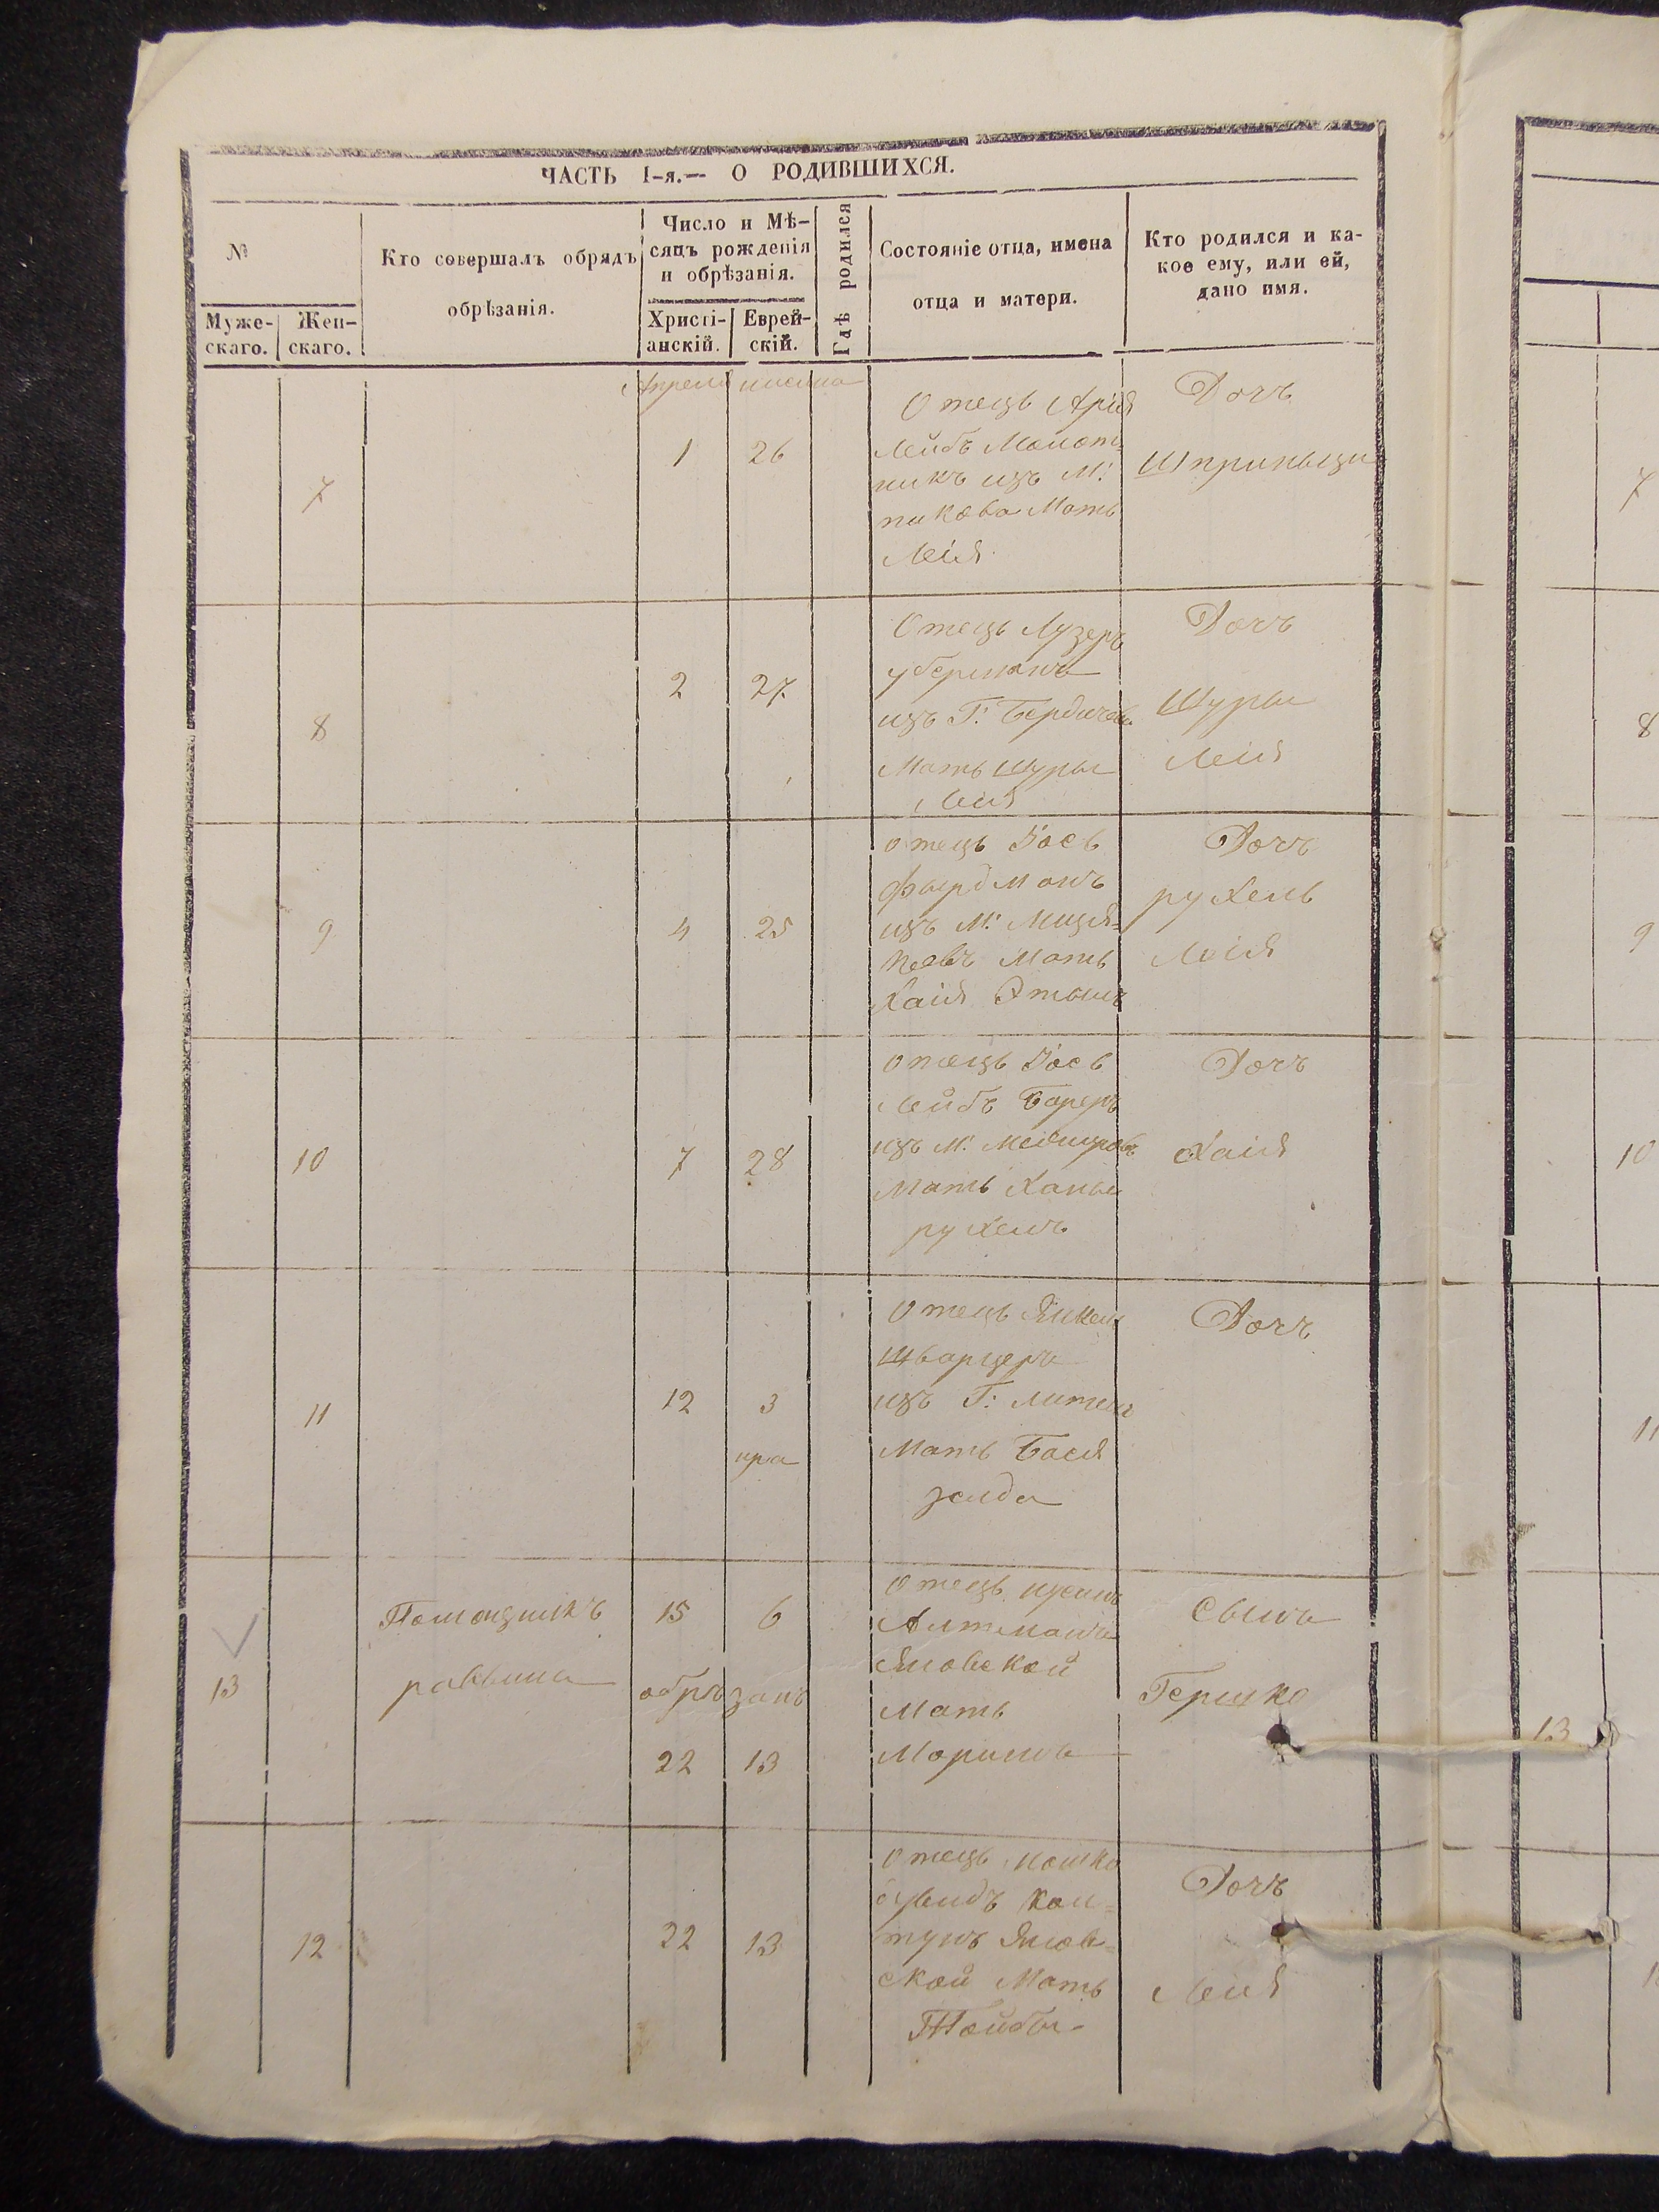 ЧАСТЬ I-я.— О РОДИВШИХСЯ.
№
Муже-
скаго.
Жен-
скаго.
Кто совершалъ обрядъ
обрѣзанія.
Число и Мѣ-
сяцъ рожденія
и обрѣзанія.
Христі-
анскій.
Еврей-
скій.
Гдѣ родился
Состояніе отца, имена
отца и матери.
Кто родился и ка-
кое ему, или ей,
дано имя.
Апреля
7
1
26
Отецъ Арія
Лейбъ
никъ изъ М:
пикова Мать
Леія
Дочъ
Шпринцы
8
2
27
Отецъ Лузеръ
уберманъ
изъ Г: Бердичев.
Мать Шуры
Леия
Дочъ
Шуры
Леия
9
4
25
отецъ Іось
изъ М:
Мать
Хаія
Дочъ
рухель
Леія
10
7
28
отецъ Іось
Лейбъ
изъ М:
Мать Ханы
рухель
Дочъ
Хаія
11
12
3
ира
Отецъ Янкель
Шварцеръ
изъ Г: Литень
Мать Бася
зелда
Дочъ
13
Помощникъ
раввина
15
6
обрѣзанъ
22
13
отецъ
Алтманъ
Яновской
Мать
Маримъ
Сынъ
Гершко
12
22
13
отецъ мошко
тунъ Янов-
ской Мать
Тойбы-
Дочъ
Леия
7
8
9
10
11
13